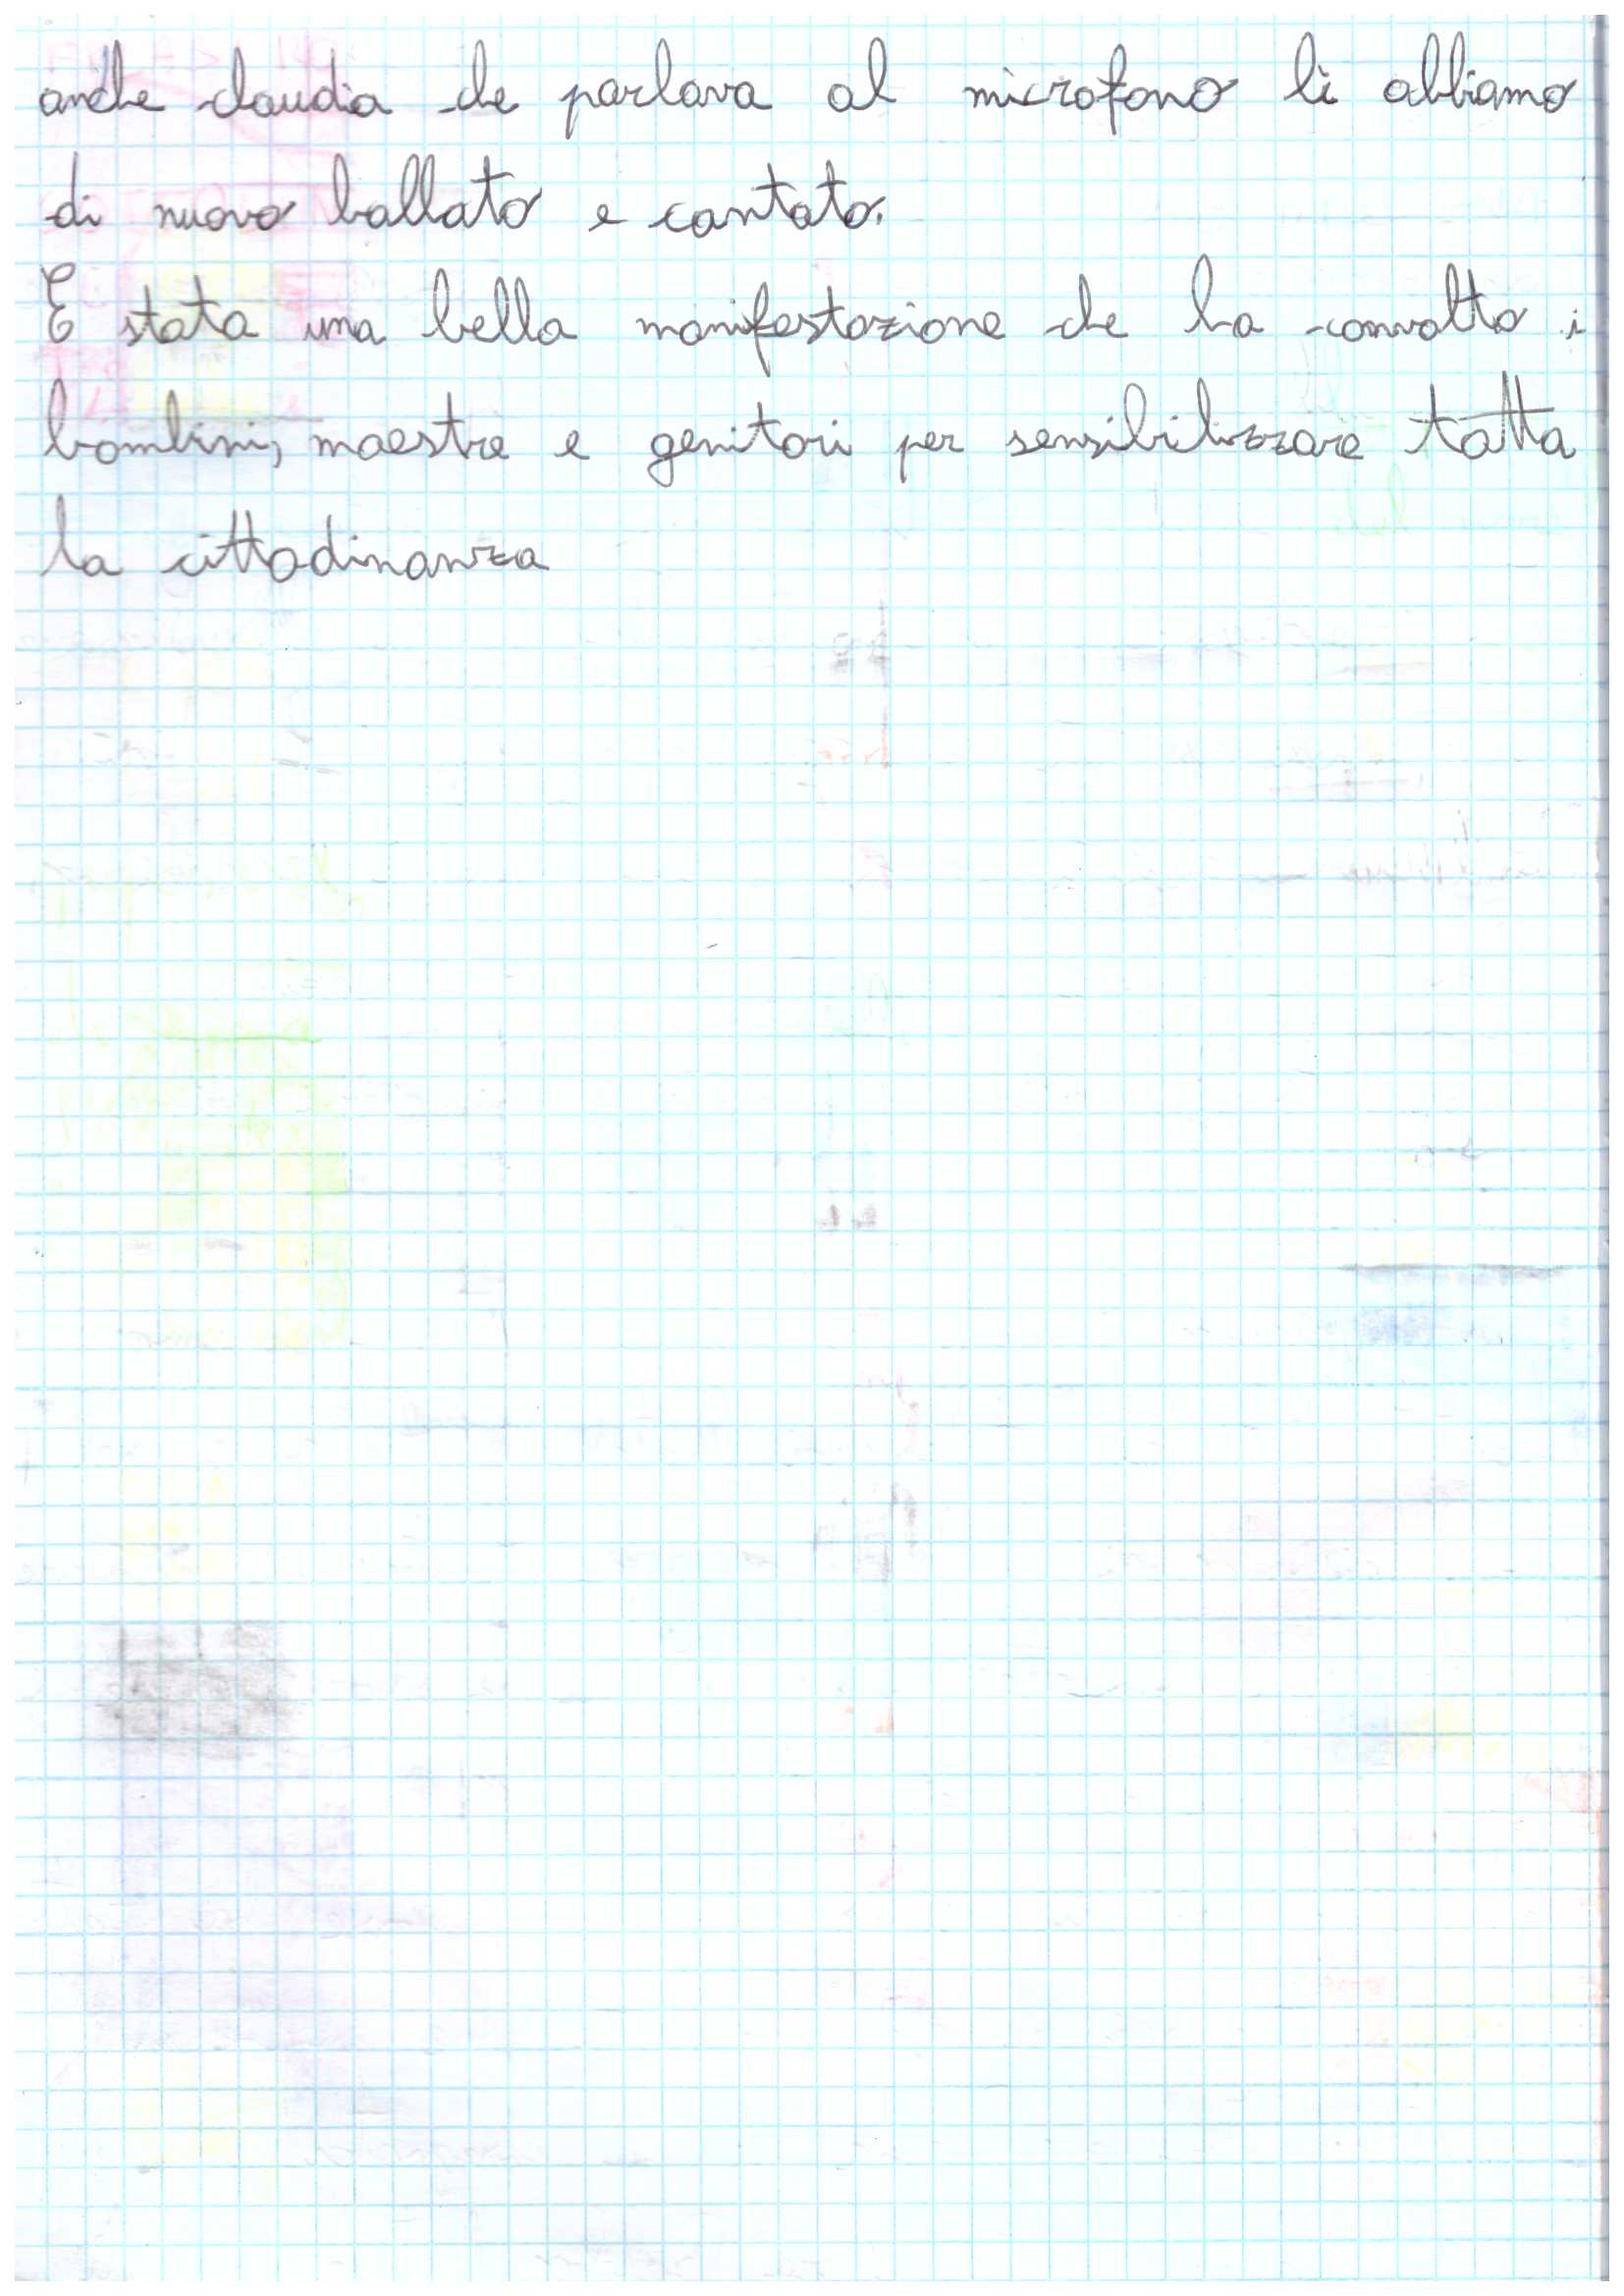 anche claudia che parlava al microfono lì abbiamo
di nuovo ballato e cantato.
E stata una bella manifestazione che ha convolto i
bambini, maestre e genitori per sensibilizzare tatta
la cittadinanza